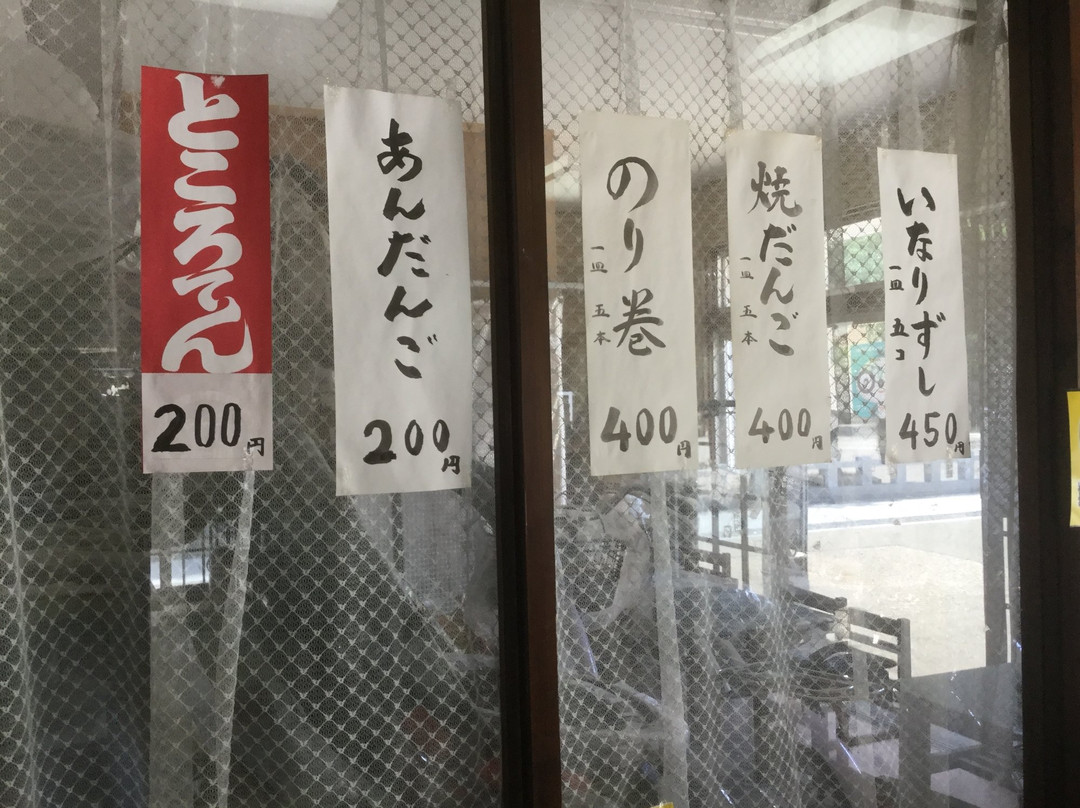 ところてん
200円
あんだんご
200円
のり巻
一皿 五本
400円
焼だんご
一皿 五本
400円
いなりずし
一皿 五コ
450円